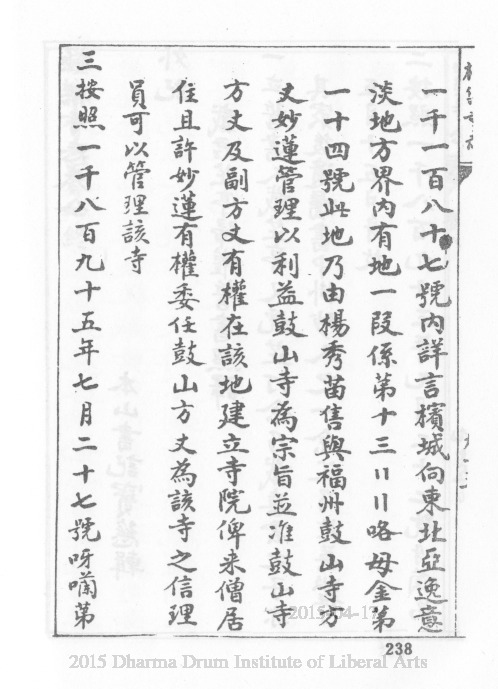 一千一百八十七號內詳言檳城向東北亞逸意
淡地方界內有地一段係第十三〢〢略母金第
一十四號此地乃由楊秀苗售與福州鼓山寺方
丈妙蓮管理以利益鼓山寺為宗旨並准鼓山寺
方丈及副方丈有權在該地建立寺院俾來僧居
住且許妙蓮有權委任鼓山方丈為該寺之信理
員可以管理該寺
三按照一千八百九十五年七月二十七號呀囒第
2015-04-17
238
2015 Dharma Drum Institute of Liberal Arts